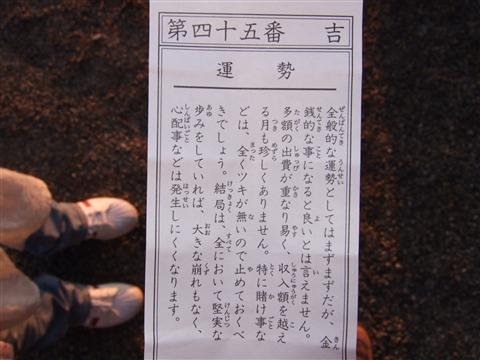 第四十五番 吉
運勢
全般的な運勢としてはまずまずだが、金
銭的な事になると良いとは言えません。
多額の出費が重なり易く、収入額を越え
る月も珍しくありません。特に賭け事な
どは、全くツキが無いので止めておくべ
きでしょう。結局は、全において堅実な
歩みをしていれば、大きな崩れもなく、
心配事などは発生しにくくなります。